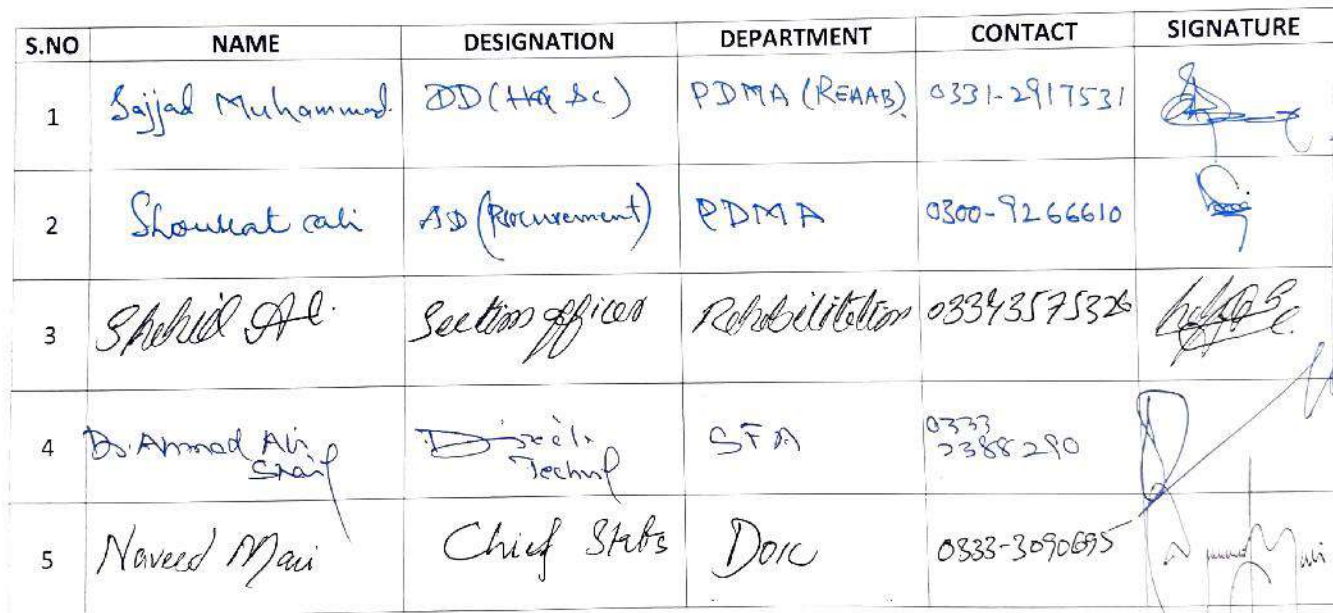 S.NO NAME DESIGNATION DEPARTMENT CONTACT SIGNATURE
1 Sajjad Muhammad. DD (HQ Sc) PDMA (REHAB). 0331-2917531
2 Shoukat Ali AD (Procurement) PDMA 0300-9266610
3 Shahid Al. Section officer Rehabilitation 03343575326
4 Dr. Ahmad Ali Shaif Technil SFA 0333 2388290
5 Naveed Chief Stats 0333-3090695